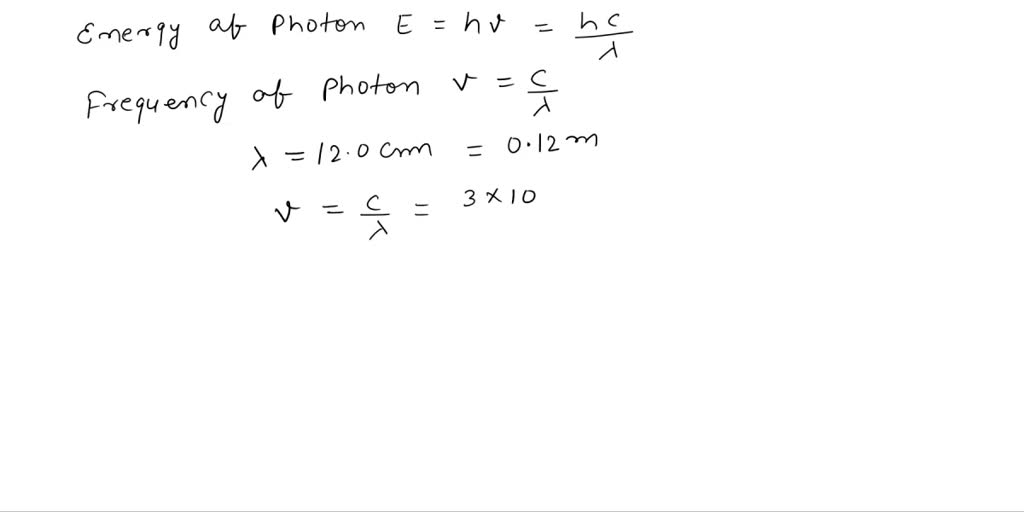 Energy of Photon E = hν = hc/λ
Frequency of Photon ν = c/λ
λ = 12.0 cm = 0.12 m
ν = c/λ = 3 × 10